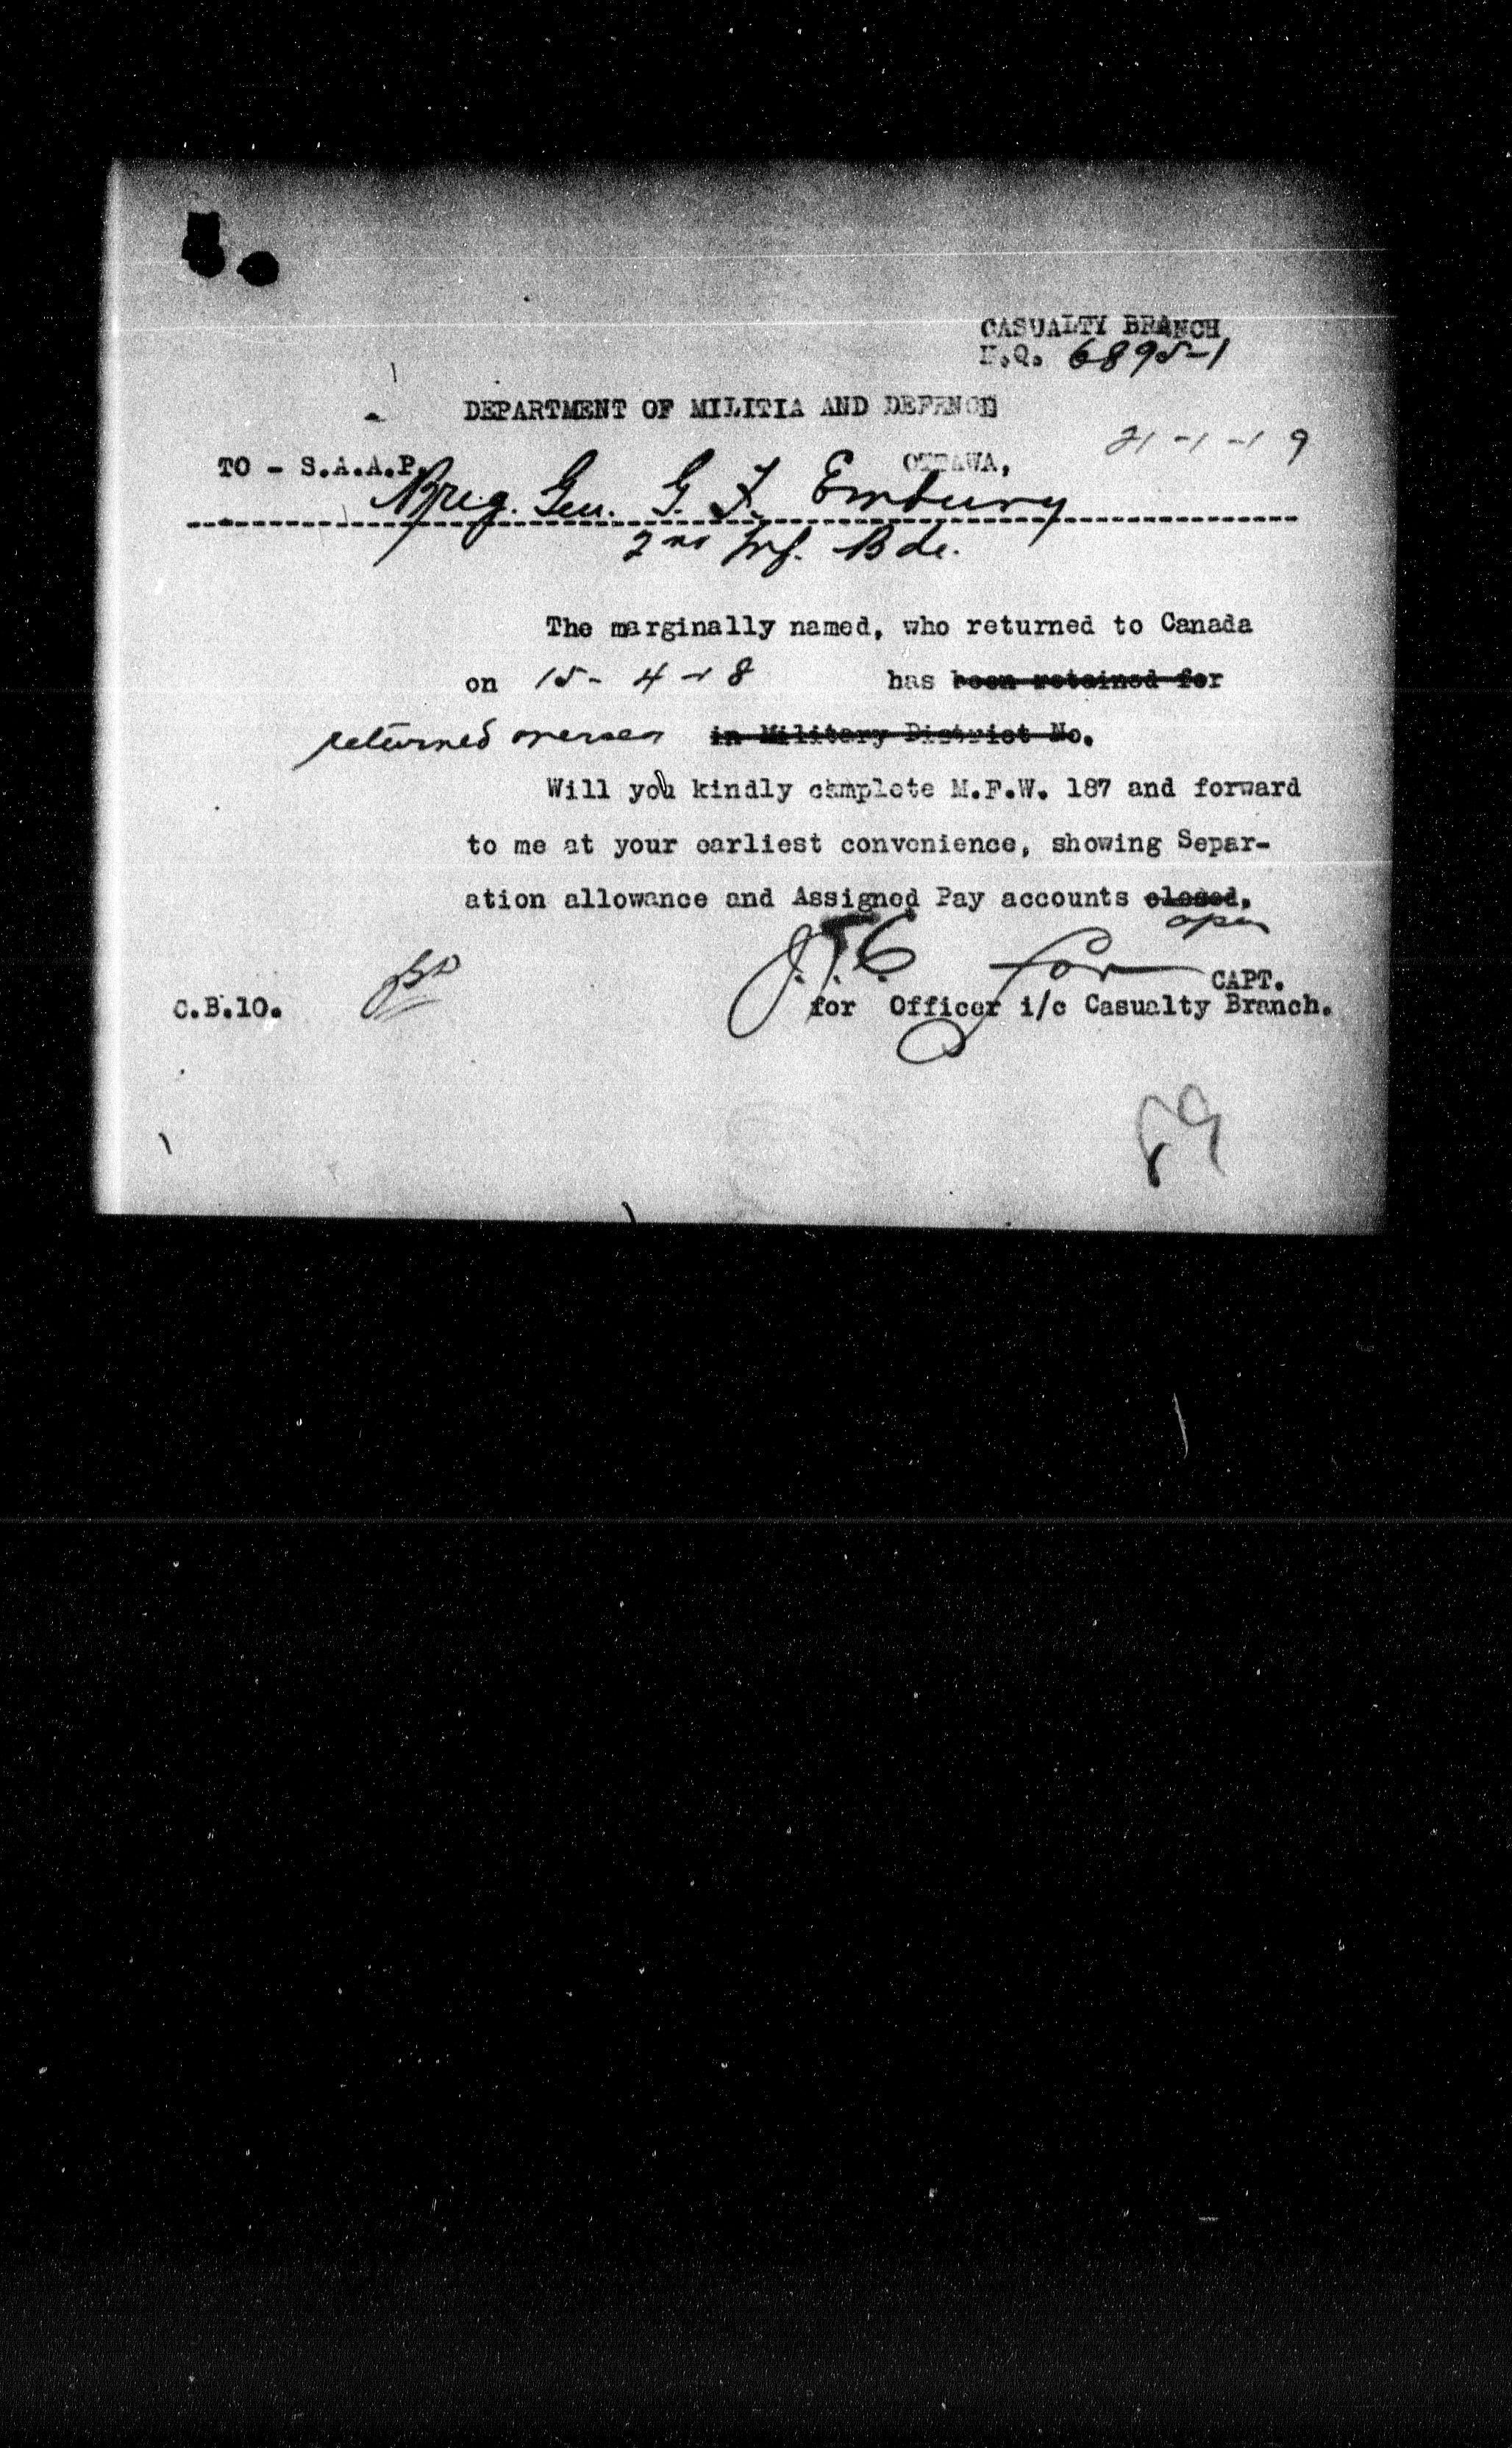 CASUALTY BRANCH
H.Q. 6895-1
DEPARTMENT OF MILITIA AND DEFENCE
21-1-19
TO - S.A.A.P. OTTAWA,
Brig. Gen. G. F. Embury
2nd Inf. Bde.
The marginally named, who returned to Canada
on 15-4-18 has been retained for
returned overseas in Military District No.
Will you kindly complete M.F.W. 187 and forward
to me at your earliest convenience, showing Separ-
ation allowance and Assigned Pay accounts closed,
open
J.T.C. for CAPT.
C.B.10. for Officer i/c Casualty Branch.
89